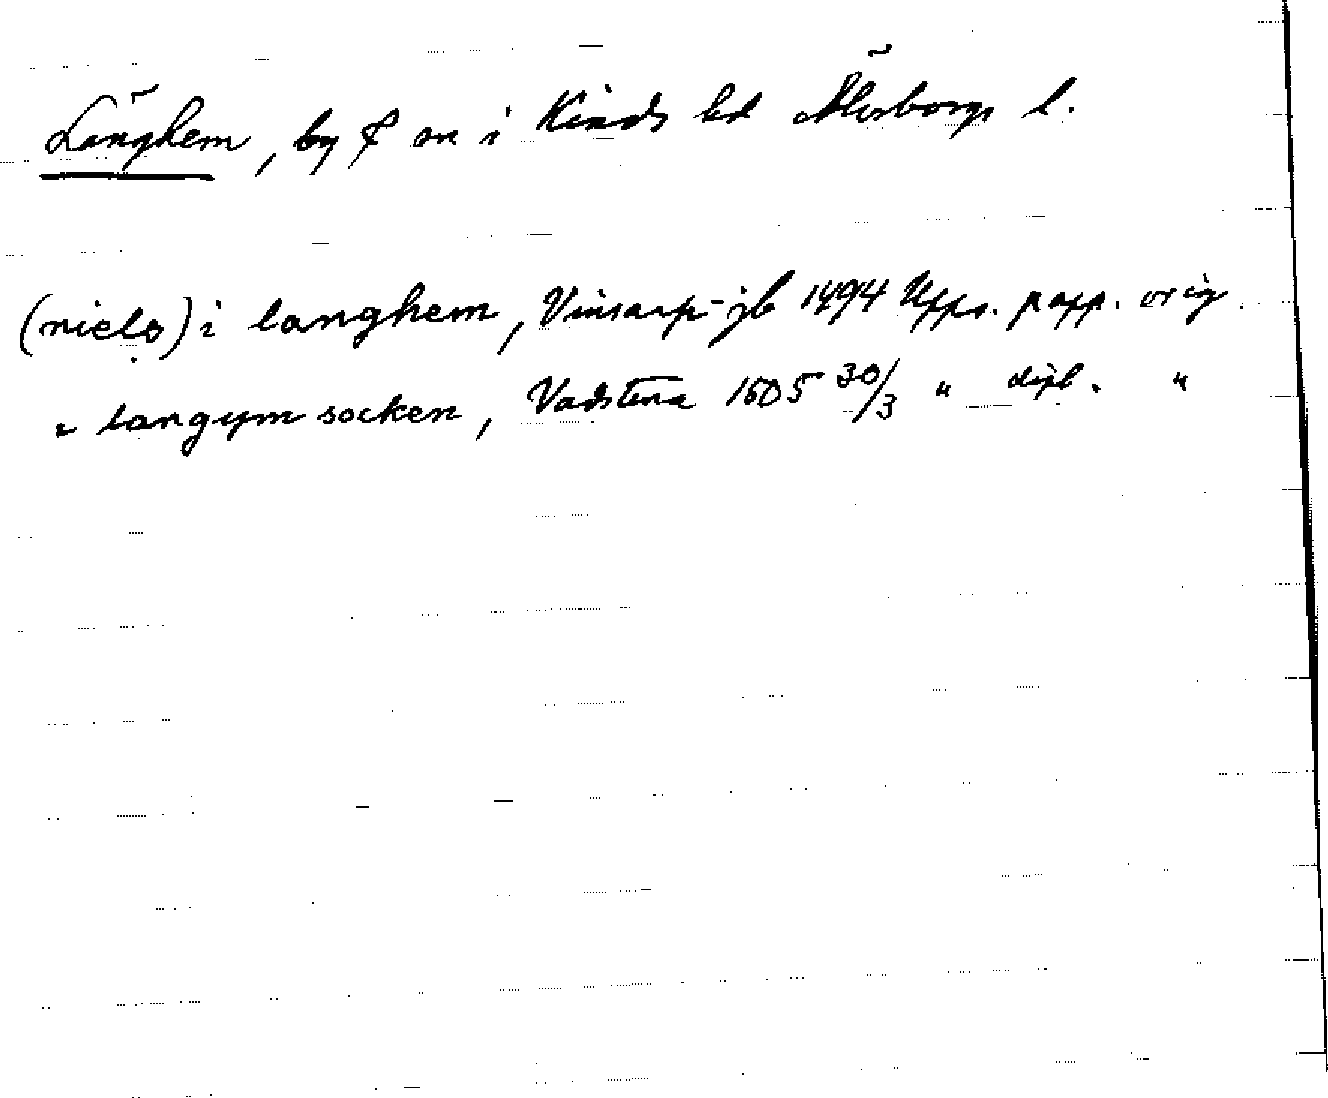 Länghem, by & sn i Kinds hd Älvsborgs l.
(niels) i langhem, Vinsarp-jb 1494 Upps. papp. orig.
" langym socken, Vadstena 1505 30/3 " dipl. "